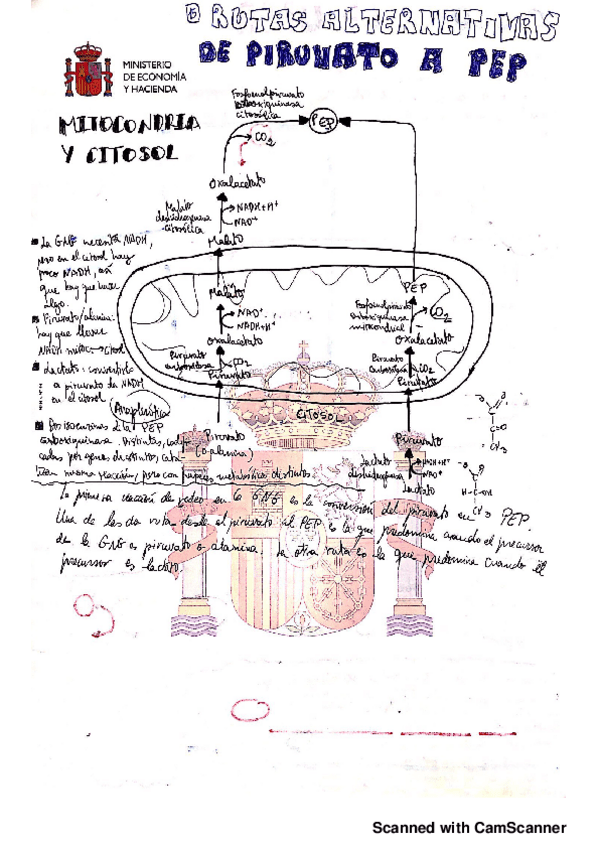 RUTAS ALTERNATIVAS
DE PIRUVATO A PEP
MINISTERIO
DE ECONOMÍA
Y HACIENDA
MITOCONDRIA
Y CITOSOL
Fosfoenolpiruvato
carboxiquinasa
citosólica
PEP
CO2
Oxalacetato
Malato
deshidrogenasa
citosólica
NADH+H+
NAD+
Malato
La GNG necesita NADH,
pero en el citosol hay
poco NADH, así
que hay que hacer
algo.
Piruvato/alanina:
hay que llevar
NADH mitoc. → citosol
Lactato: convertirlo
a piruvato da NADH
en el citosol
(Anaplerótica)
Dos isoenzimas de la PEP
carboxiquinasa. Distintas, codifi-
cadas por genes distintos, cata-
lizan misma reacción, pero con papeles metabólicos distintos.
Malato
NAD+
NADH+H+
Oxalacetato
Piruvato
carboxilasa
CO2
Piruvato
PEP
Fosfoenolpiruvato
carboxiquinasa
mitocondrial
CO2
Oxalacetato
Piruvato
carboxilasa
CO2
Piruvato
CITOSOL
Piruvato
(o alanina)
Piruvato
Lactato
deshidrogenasa
NADH+H+
NAD+
Lactato
C=O
CH3
H-C-OH
CH3
La primera reacción de rodeo en la GNG es la conversión del piruvato en PEP.
Una de las dos rutas desde el piruvato al PEP es la que predomina cuando el precursor
de la GNG es piruvato o alanina. La otra ruta es la que predomina cuando el
precursor es lactato.
Scanned with CamScanner